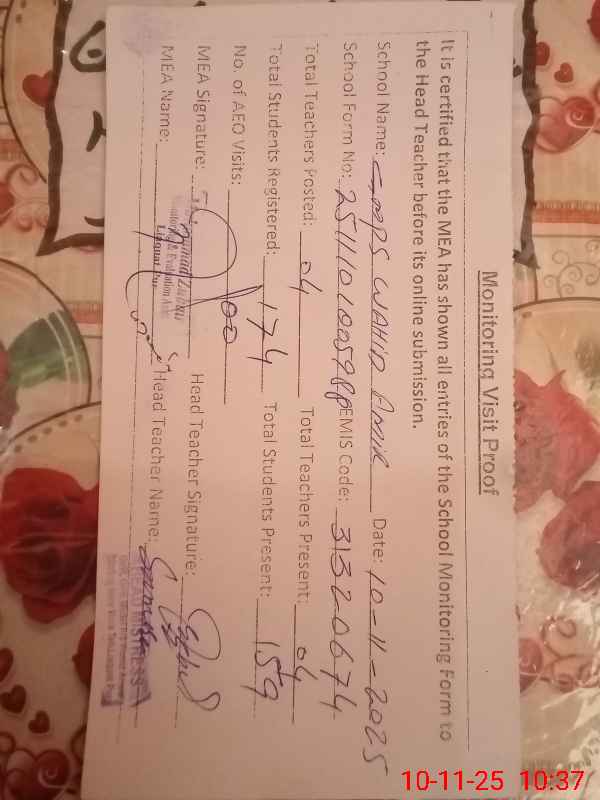 Monitoring Visit Proof
It is certified that the MEA has shown all entries of the School Monitoring Form to
the Head Teacher before its online submission.
School Name: GMPS WAHID AMIR Date: 10-11-2025
School Form No: EMIS Code: 31320674
Total Teachers Posted: 04 Total Teachers Present: 04
Total Students Registered: 174 Total Students Present: 159
No. of AEO Visits: 00
MEA Signature: Head Teacher Signature:
Monitoring & Evaluation
MEA Name: Head Teacher Name:
HEAD MISTRESS
10-11-25 10:37